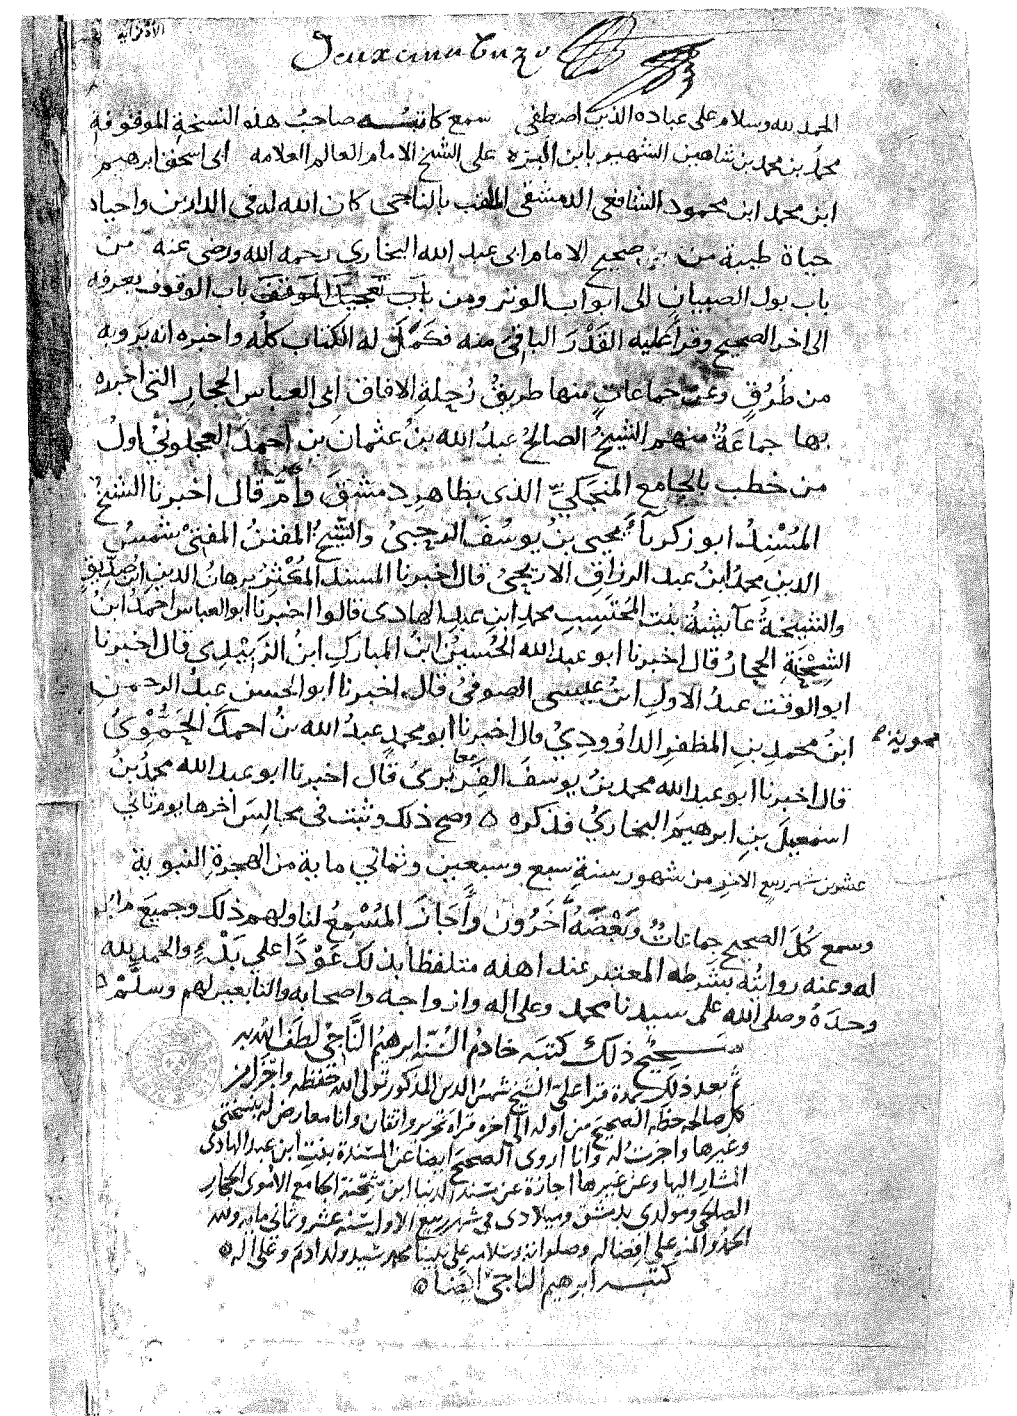 الحمد لله وسلام على عباده الذين اصطفى سمع كاتبه صاحب هذه النسخة الموقوفة
محمد بن محمد بن شاهين الشهير بابن البزه على الشيخ الامام العالم العلامه ابى اسحق ابرهيم
ابن محمد ابن محمود الشافعي الدمشقي الملقب بالناجي كان الله له في الدارين واحياه
حياة طيبة من صحيح الامام ابى عبد الله البخاري رحمه الله ورضى عنه من
باب بول الصبيان الى ابواب الوتر ومن باب تعجيل الموقف باب الوقوف بعرفه
الى اخر الصحيح وقرأ عليه القدر الباقي منه فكمل له الكتاب كله واخبره انه يرويه
من طرق وعن جماعات منها طريق رحلة الافاق ابى العباس الحجار التى اخبره
بها جماعة منهم الشيخ الصالح عبد الله بن عثمان بن احمد العجلوني اول
من خطب بالجامع المنجكي الذى بظاهر دمشق وأم قال اخبرنا الشيخ
المسند ابو زكريا يحيى بن يوسف الرحبي والشيخ المفنن المفتي شمس
الدين محمد ابن عبد الرزاق الاريحي قال اخبرنا المسند المكثر برهان الدين ابن صديق
والشيخة عآئشة بنت المحتسب محمد ابن عبد الهادى قالوا اخبرنا ابو العباس احمد ابن
الشحنة الحجار قال اخبرنا ابو عبد الله الحسين ابن المبارك ابن الزبيدي قال اخبرنا
ابو الوقت عبد الاول ابن عيسى الصوفي قال اخبرنا ابو الحسن عبد الرحمن
ابن محمد بن المظفر الداوودي قال اخبرنا ابو محمد عبد الله بن احمد الحموي
حمويه
قال اخبرنا ابو عبد الله محمد بن يوسف الفربرى قال اخبرنا ابو عبد الله محمد بن
اسمعيل بن ابرهيم البخاري فذكره ۵ وصح ذلك وثبت في مجالس اخرها يوم ثاني
عشرين شهر ربيع الاخر من شهور سنة سبع وسبعين وثماني ماية من الهجرة النبوية
وسمع كل الصحيح جماعات وبعضه آخرون وأجاز المسمع لنا ولهم ذلك وجميع ما يجوز
له وعنه روايته بشرطه المعتبر عند اهله متلفظا بذلك عودا على بدء والحمد لله
وحده وصلى الله على سيدنا محمد وعلى اله وازواجه واصحابه والتابعين لهم وسلم
صحيح ذلك كتبه خادم السنة ابرهيم الناجي لطف الله به
ثم بعد ذلك بمدة قرأ علي الشيخ شمس الدين المذكور تولى الله حفظه واجزل من
كل صالحه حظه الصحيح من اوله الى آخره قراة تحرير واتقان وانا معارض له بنسختي
وغيرها واجزت له وانا اروى الصحيح ايضا عن المسندة بنت ابن عبد الهادى
المشار اليها وعن غيرها اجازة عن مسند الدنيا ابن شحنة الجامع الأموى الحجار
الصالحي ومولدى بدمشق وميلادى في شهر ربيع الاول سنة عشر وثماني مايه ولله
الحمد والمنه على افضاله وصلواته وسلامه على نبينا محمد سيد ولد ادم وعلى اله
كتبه ابرهيم الناجي ايضا